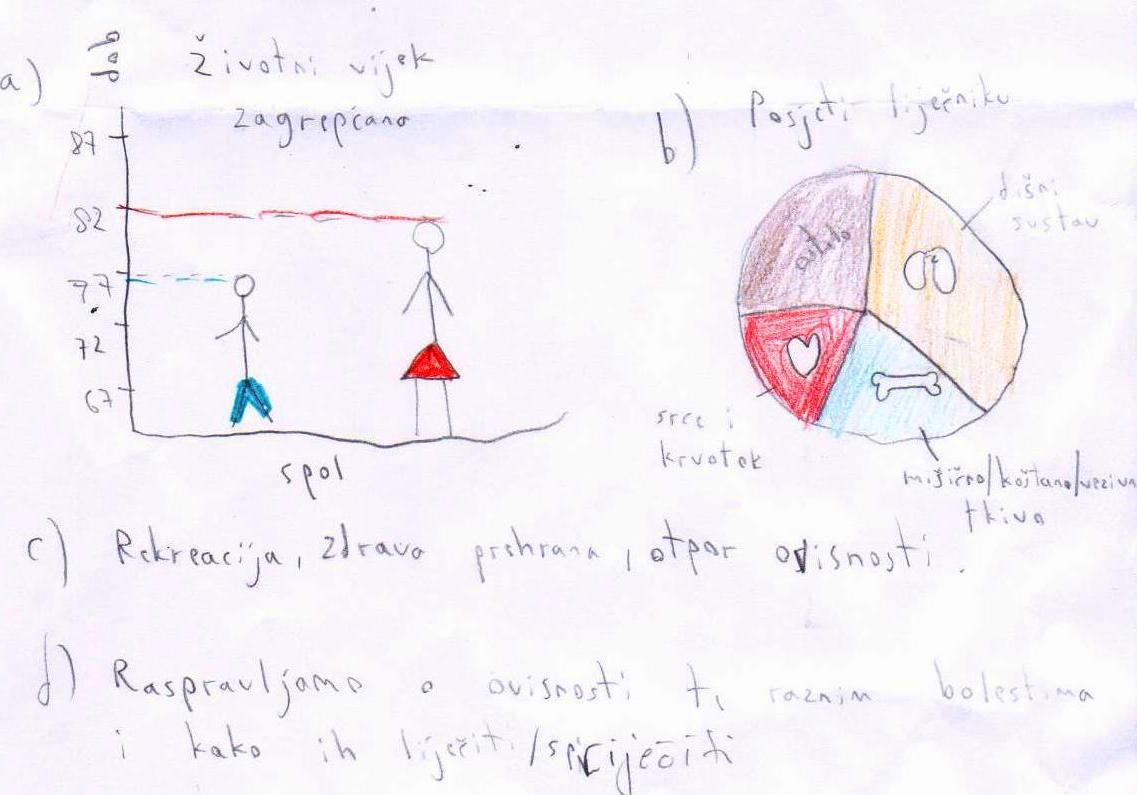 a)
dob
Životni vijek
zagrepčana
87
82
77
72
67
spol
b) Posjeti liječniku
dišni
sustav
ostalo
srce i
krvotok
mišićno/koštano/vezivn
tkivo
c) Rekreacija, zdrava prehrana, otpor ovisnosti.
d) Raspravljamo o ovisnosti te raznim bolestima
i kako ih liječiti/spriječiti